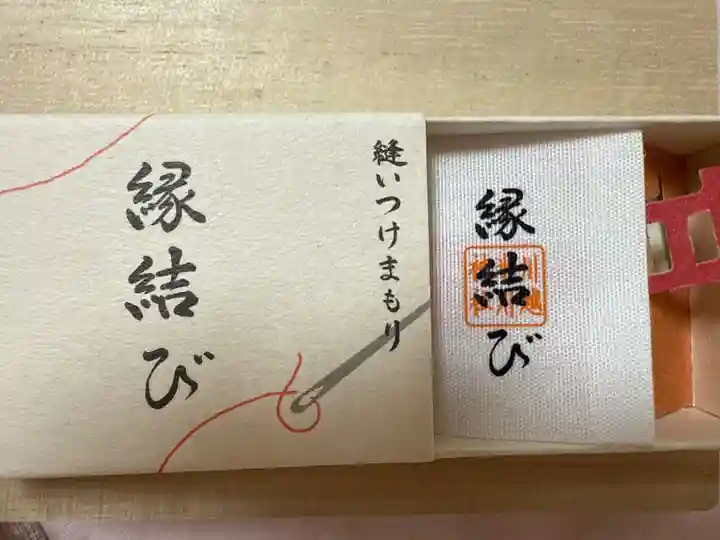 縫いつけまもり
縁結び
縁結び